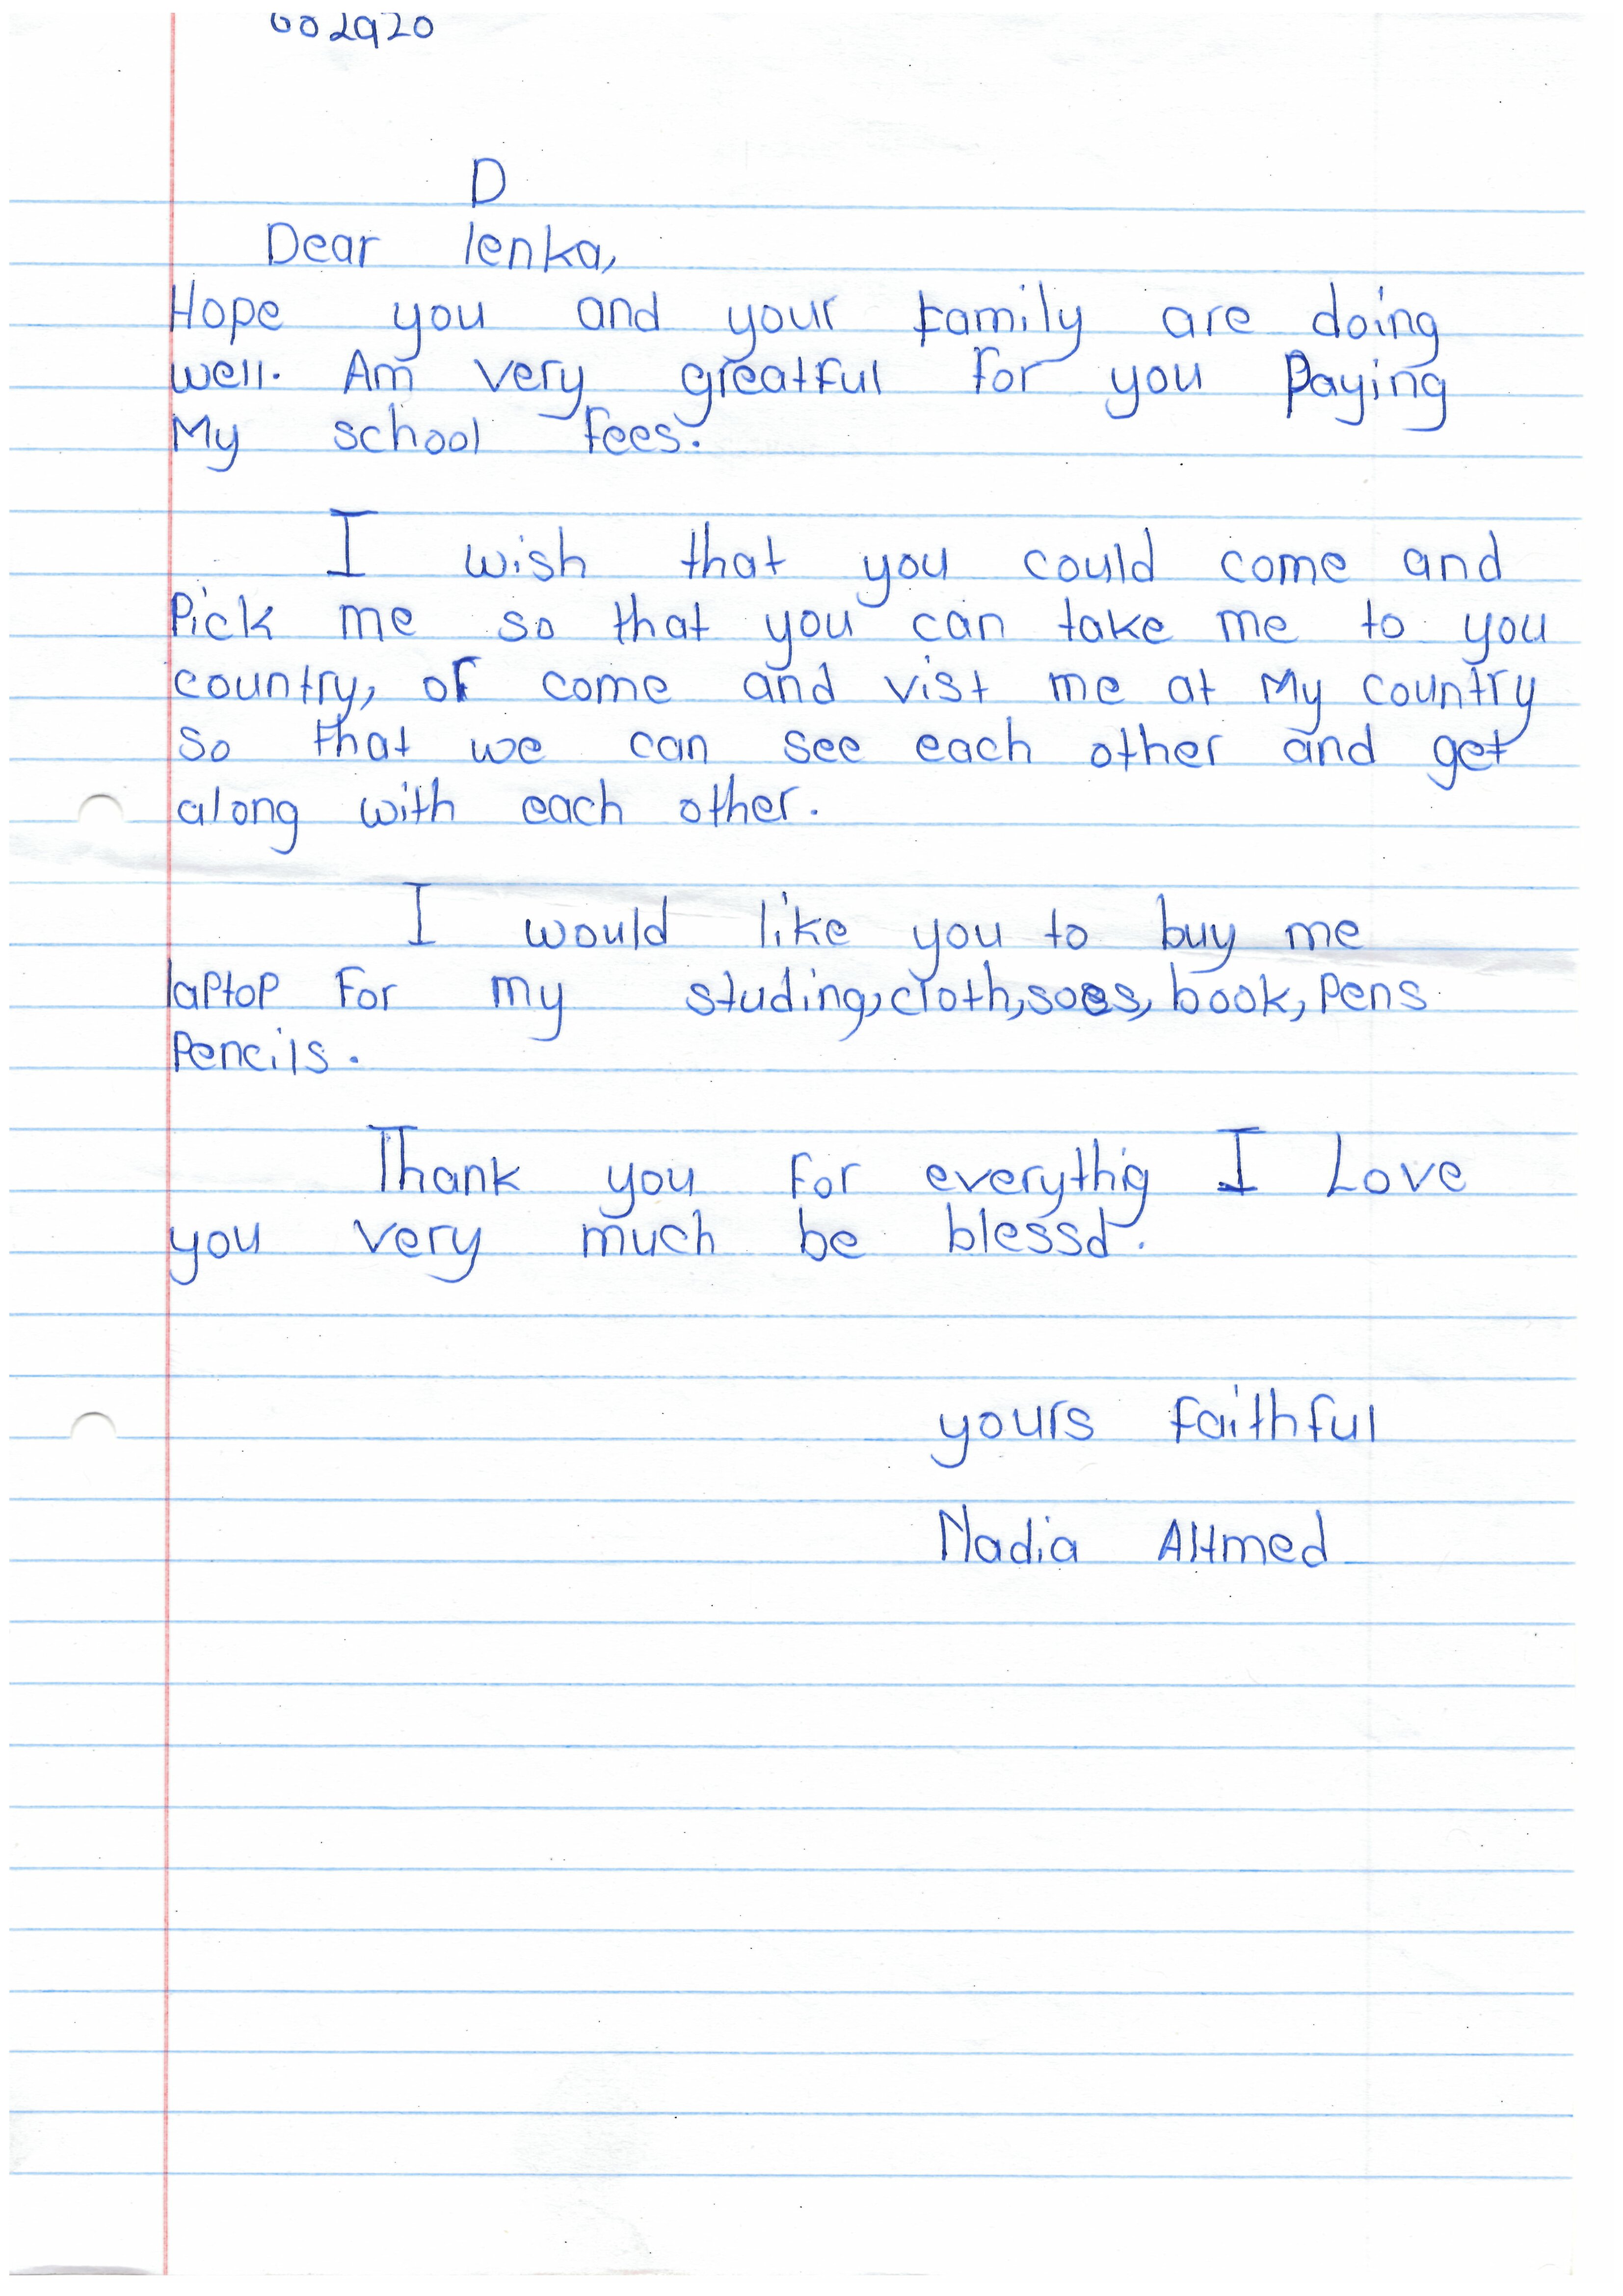 002920
D
Dear lenka,
Hope you and your family are doing
well. Am very greatful for you Paying
My school fees.
I wish that you could come and
Pick me so that you can take me to you
country, or come and vist me at My country
so that we can see each other and get
along with each other.
I would like you to buy me
laptop for my studing, cloth, soes, book, Pens
Pencils.
Thank you for everythig I Love
you very much be blessd.
yours faithful
Nadia AHmed